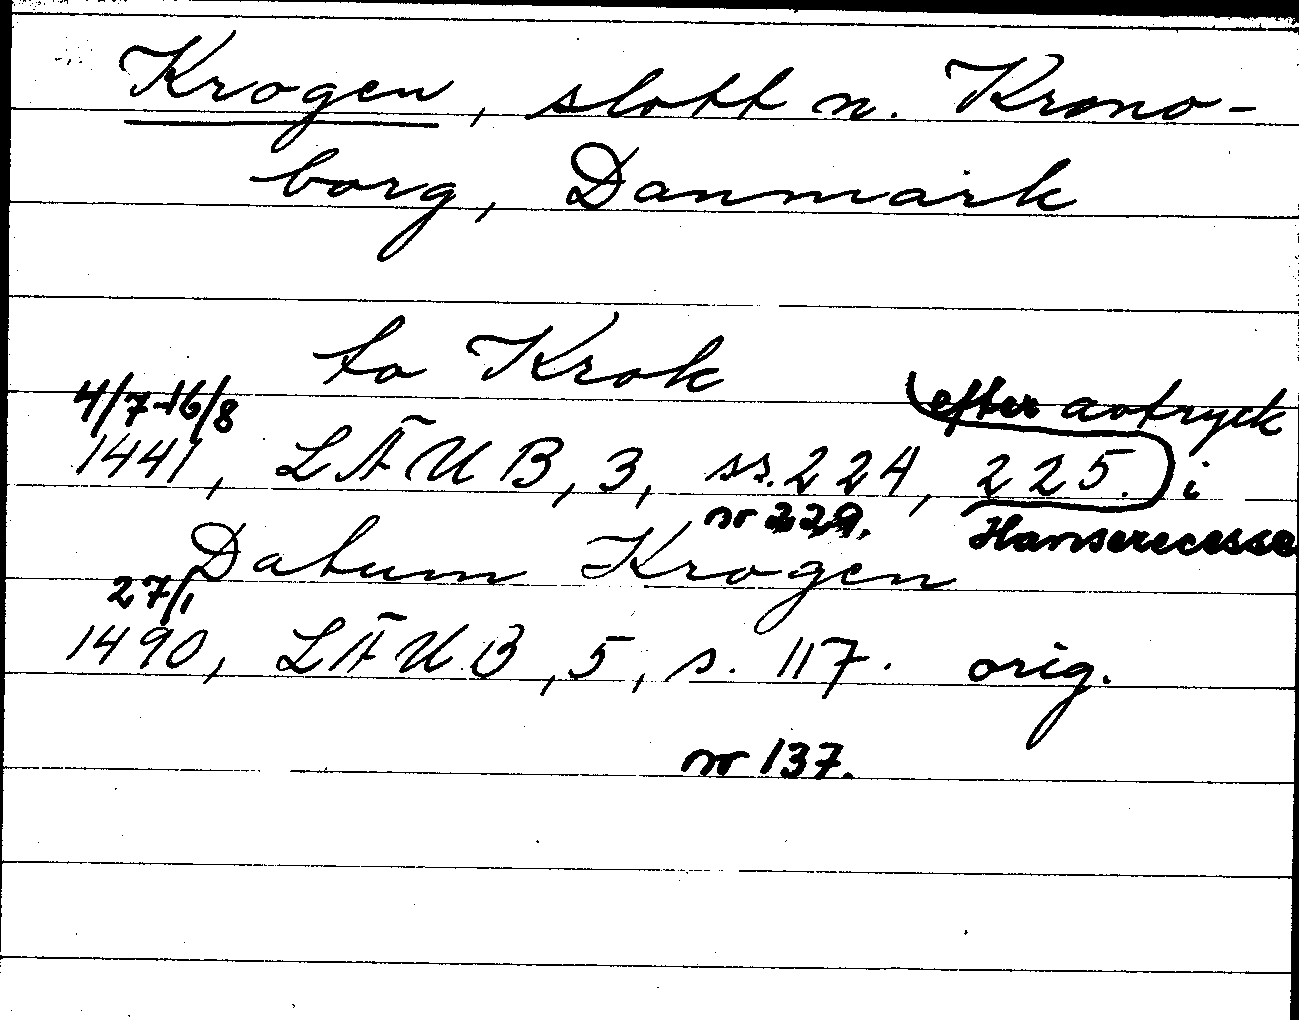 Krogen, slott n. Krono-
borg, Danmark
to Krok
4/7-16/8 efter avtryck
1441, LÄUB, 3, ss. 224, 225. i
nr 229. Hanserecesse
Datum Krogen
27/1
1490, LÄUB, 5, s. 117. orig.
nr 137.